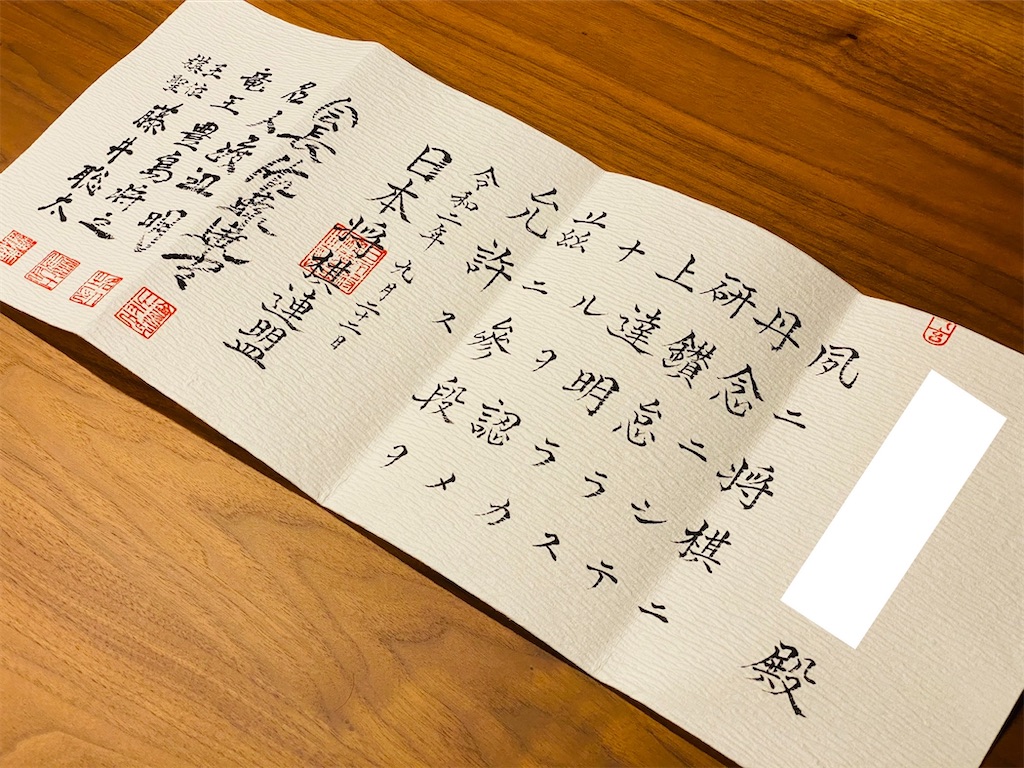 殿
夙ニ将棋ニ
丹念ニシテ
研鑽怠ラス
上達明ラカ
ナルヲ認メ
茲ニ參段ヲ
允許ス
令和二年九月二十二日
日本将棋連盟
会長 佐藤康光
名人 渡辺明
竜王 豊島将之
王位
棋聖 藤井聡太